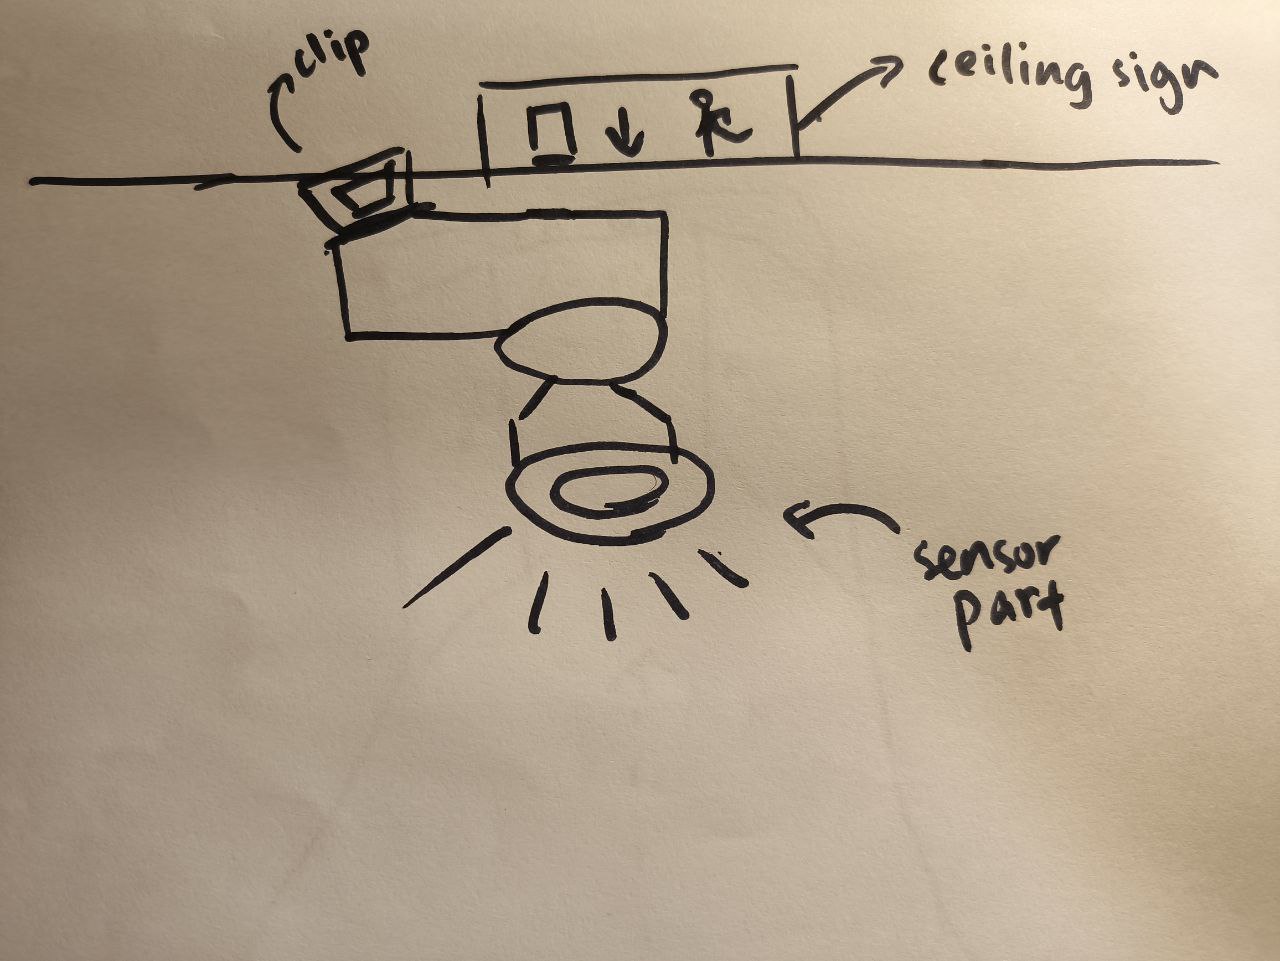 clip
ceiling sign
sensor
part